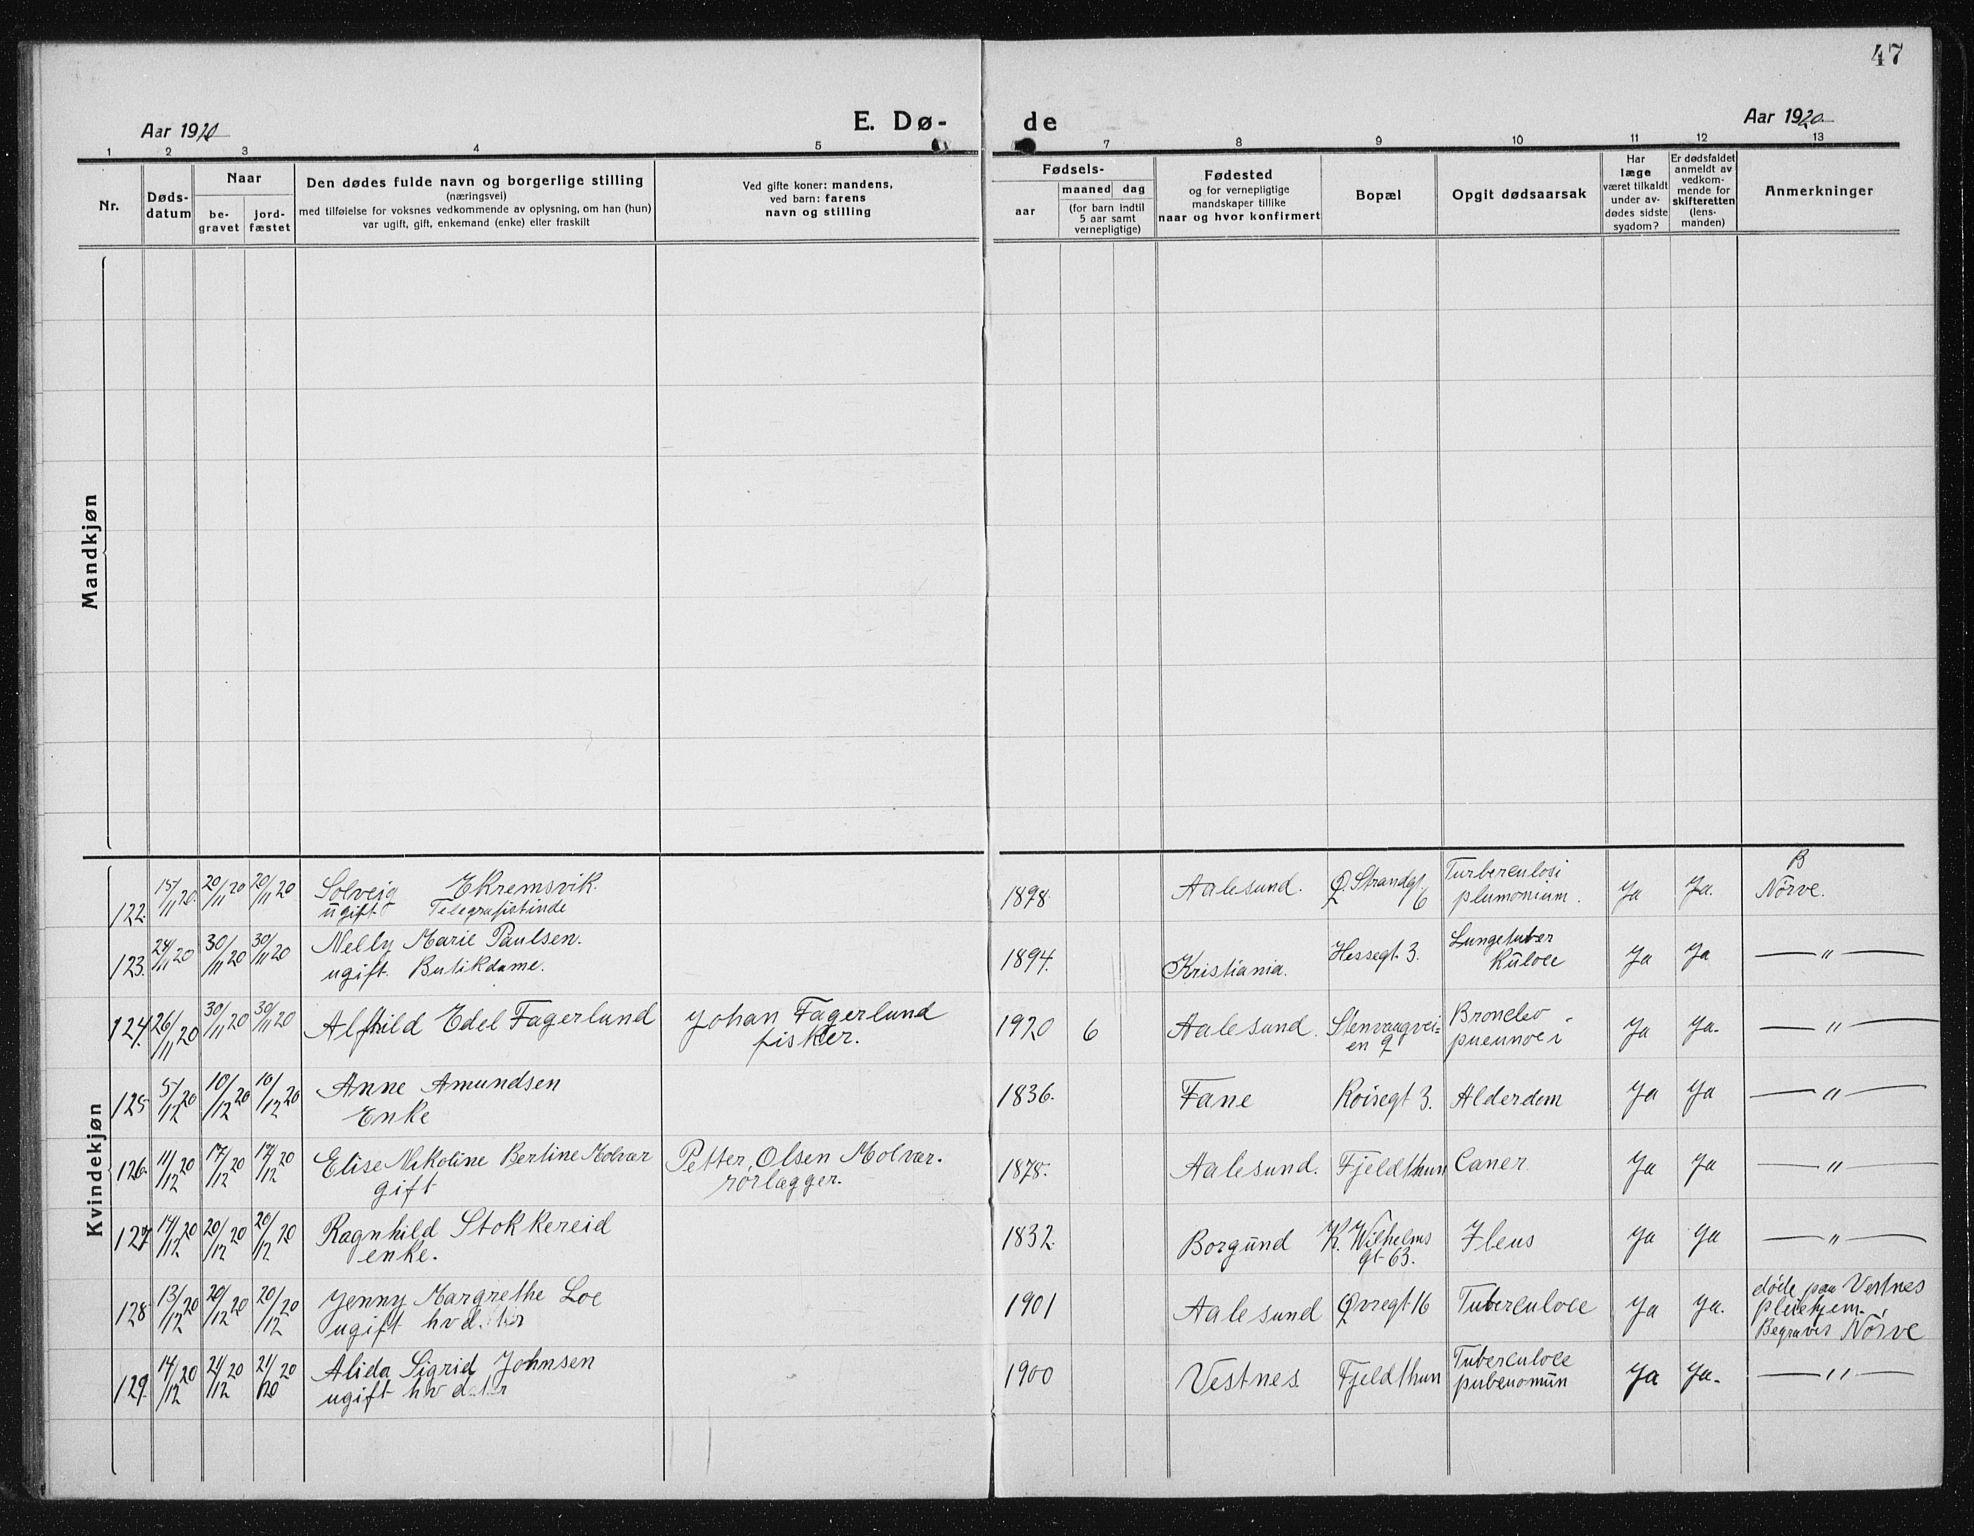 47
Aar 1920
E. Dø-
de
Aar 1920
1 2 3 4 5 7 8 9 10 11 12 13
Nr.
Døds-
datum
Naar
be-
gravet
jord-
fæstet
Den dødes fulde navn og borgerlige stilling
(næringsvei)
med tilføielse for voksnes vedkommende av oplysning, om han (hun)
var ugift, gift, enkemand (enke) eller fraskilt
Ved gifte koner: mandens,
ved barn: farens
navn og stilling
Fødsels-
aar
maaned dag
(for barn indtil
5 aar samt
vernepligtige)
Fødested
og for vernepligtige
mandskaper tillike
naar og hvor konfirmert
Bopæl
Opgit dødsaarsak
Har
læge
været tilkaldt
under av-
dødes sidste
sygdom?
Er dødsfaldet
anmeldt av
vedkom-
mende for
skifteretten
(lens-
manden)
Anmerkninger
Mandkjøn
Kvindekjøn
122. 15/11 20. 20/11 20 20/11 20 Solveig Ekremsvik. 1898. Aalesund. Ø Strandgt. 6 Turberculosi Ja Ja. B
ugift. Telegrafistinde plumonium. Nørve.
123. 24/11 20 30/11 20 30/11 20 Nelly Marie Paulsen. 1894. Kristiania. Hessegt. 3. Lungetuber Ja Ja — " —
ugift. Butikdame. kuloce
124. 26/11 20 30/11 20 30/11 20 Alfhild Edel Fagerlund Johan Fagerlund 1920 6 Aalesund. Stenvaagvei= Ja Ja. — " —
fisker. en 9
125 5/12 20 10/12 20 10/12 20 Anne Amundsen 1836. Fane Roisegt 3. Alderdom Ja Ja — " —
Enke
126. 11/12 20 17/12 20 17/12 20 Elise Nikoline Bertine Molvær Petter Olsen Molvær. 1878. Aalesund. Fjeldthun Caner. Ja Ja — " —
gift rørlægger.
127 14/12 20 20/12 20 20/12 20 Ragnhild Stokkereid 1832. Borgund K. Wilhelms Ileus Ja Ja — " —
enke. gt. 63.
128 13/12 20 20/12 20 20/12 20 Jenny Margrethe Loe 1901 Aalesund Øvregt. 16 Tuberculoce Ja Ja. døde paa Vestnes
ugift hvd.ter pleiehjem.
Begraves Nørve
129. 14/12 20 21/12 20 21/12 20 Alida Sigrid Johnsen 1900 Vestnes Fjeldthun Tuberculoce Ja Ja. — " —
ugift hvd.ter